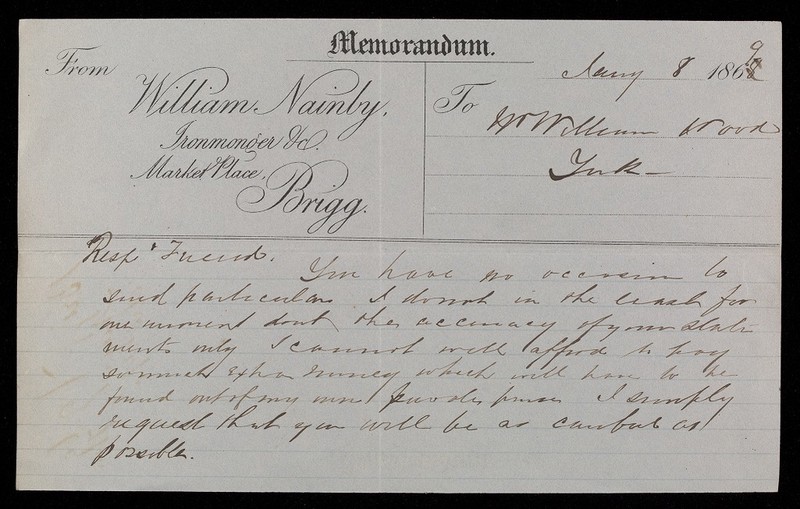 Memorandum.
From
William Nainby,
Ironmonger &c.
Market Place,
Brigg.
Jany 8 1869
To
Mr William Wood
York
Resp^d Friend.
You have no occasion to
send particulars I do not in the least for
one moment dout the accuracy of your state
ments only I cannot well afford to pay
so much extra money which will have to be
found out of my own private purse I simply
request that you will be as careful as
possible.